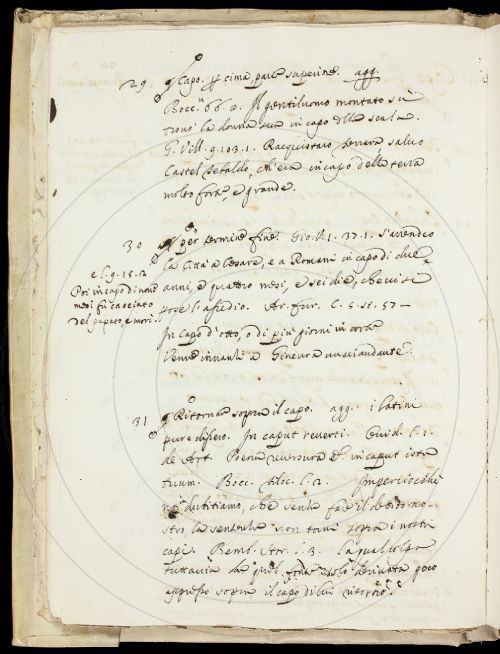 29 Capo. p cima, parte superiore. agg.
Bocc. n. 66. 2. Il gentiluomo montato su
trovò la donna sua in capo della scala.
G. Vill. 9. 103. 1. Racquistaro Ferrara salvo
Castel Tedaldo, ch'era in capo della terra
molto forte e grande.
30 per termine fine. Gio. V. 1. 37. 1. s'arrendeo
la Città a Cesare, e a Romani in capo di due
anni, e quattro mesi, e sei die, che vi si
pose l'assedio. Ar. fur. C. 5. st. 57
In capo d'otto, o di più giorni in corte
Venne innanti a Ginevra un viandante
e l. 9. 15. 2
Poi in capo di nove
mesi fu cacciato
del papato, e morì.
31 Ritornare sopra il capo. agg. i latini
pure dissero. In caput reverti. Ovid. l. 1.
de Art. Poena reversura est in caput ista
tuum. Bocc. filoc. l. 2. Imperciocchè
noi dubitiamo, che senta
stro, la sentenza non torni sopra i nostri
capi. Bemb. stor. l. 3. la qual colpa
tuttavia da derivata poco
appresso sopra il capo di lui ritornò.